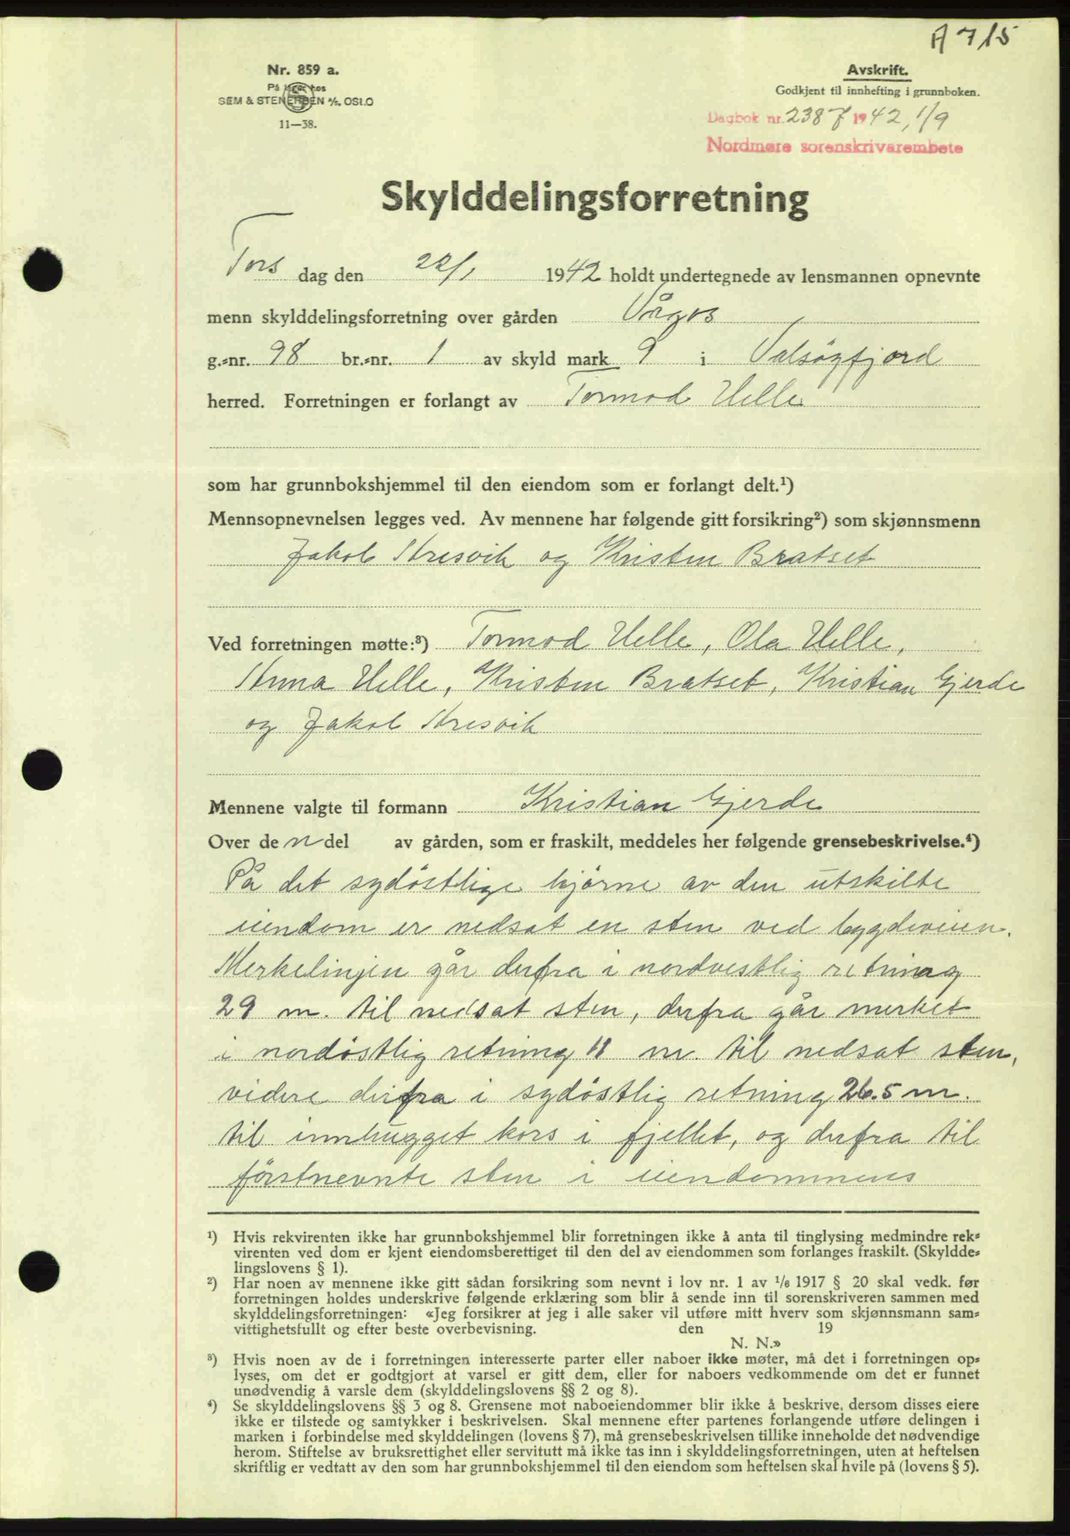 A 715
Nr. 859 a.
På lager hos
SEM & STENERSEN A/S. OSLO
11—38.
Avskrift.
Godkjent til innhefting i grunnboken.
Dagbok nr. 1942, 1/9
Nordmøre sorenskrivarembete
Skylddelingsforretning
Tors dag den 22/1 1942 holdt undertegnede av lensmannen opnevnte
menn skylddelingsforretning over gården Vågos
g.-nr. 98 br.-nr. 1 av skyld mark 9 i Valsøyfjord
herred. Forretningen er forlangt av Tormod Helle
som har grunnbokshjemmel til den eiendom som er forlangt delt.¹)
Mennsopnevnelsen legges ved. Av mennene har følgende gitt forsikring²) som skjønnsmenn
Jakob Aresvik og Kristen Bratset
Ved forretningen møtte:³) Tormod Helle, Ola Helle,
Anna Helle, Kristen Bratset, Kristian Gjerde
og Jakob Aresvik
Mennene valgte til formann Kristian Gjerde
Over den del av gården, som er fraskilt, meddeles her følgende grensebeskrivelse.⁴)
På det sydöstlige hjörne av den utskilte
eiendom er nedsat en sten ved bygdeveien.
Merkelinjen går derfra i nordvestlig retning
29 m. til nedsat sten, derfra går merket
i nordöstlig retning 11 m til nedsat sten,
videre derfra i sydöstlig retning 26.5 m.
til innhugget kors i fjellet, og derfra til
förstnevnte sten i eiendommens
¹) Hvis rekvirenten ikke har grunnbokshjemmel blir forretningen ikke å anta til tinglysing medmindre rek-
virenten ved dom er kjent eiendomsberettiget til den del av eiendommen som forlanges fraskilt. (Skyldde-
lingslovens § 1).
²) Har noen av mennene ikke gitt sådan forsikring som nevnt i lov nr. 1 av 1/6 1917 § 20 skal vedk. før
forretningen holdes underskrive følgende erklæring som blir å sende inn til sorenskriveren sammen med
skylddelingsforretningen: «Jeg forsikrer at jeg i alle saker vil utføre mitt hverv som skjønnsmann sam-
vittighetsfullt og efter beste overbevisning. den 19
N. N.»
³) Hvis noen av de i forretningen interesserte parter eller naboer ikke møter, må det i forretningen op-
lyses, om det er godtgjort at varsel er gitt dem, eller for naboers vedkommende om det er funnet
unødvendig å varsle dem (skylddelingslovens §§ 2 og 8).
⁴) Se skylddelingslovens §§ 3 og 8. Grensene mot naboeiendommer blir ikke å beskrive, dersom disses eiere
ikke er tilstede og samtykker i beskrivelsen. Skal mennene efter partenes forlangende utføre delingen i
marken i forbindelse med skylddelingen (lovens § 7), må grensebeskrivelsen tillike inneholde det nødvendige
herom. Stiftelse av bruksrettighet eller servitutt må ikke tas inn i skylddelingsforretningen, uten at heftelsen
skriftlig er vedtatt av den som har grunnbokshjemmel til den eiendom som heftelsen skal hvile på (lovens § 5).